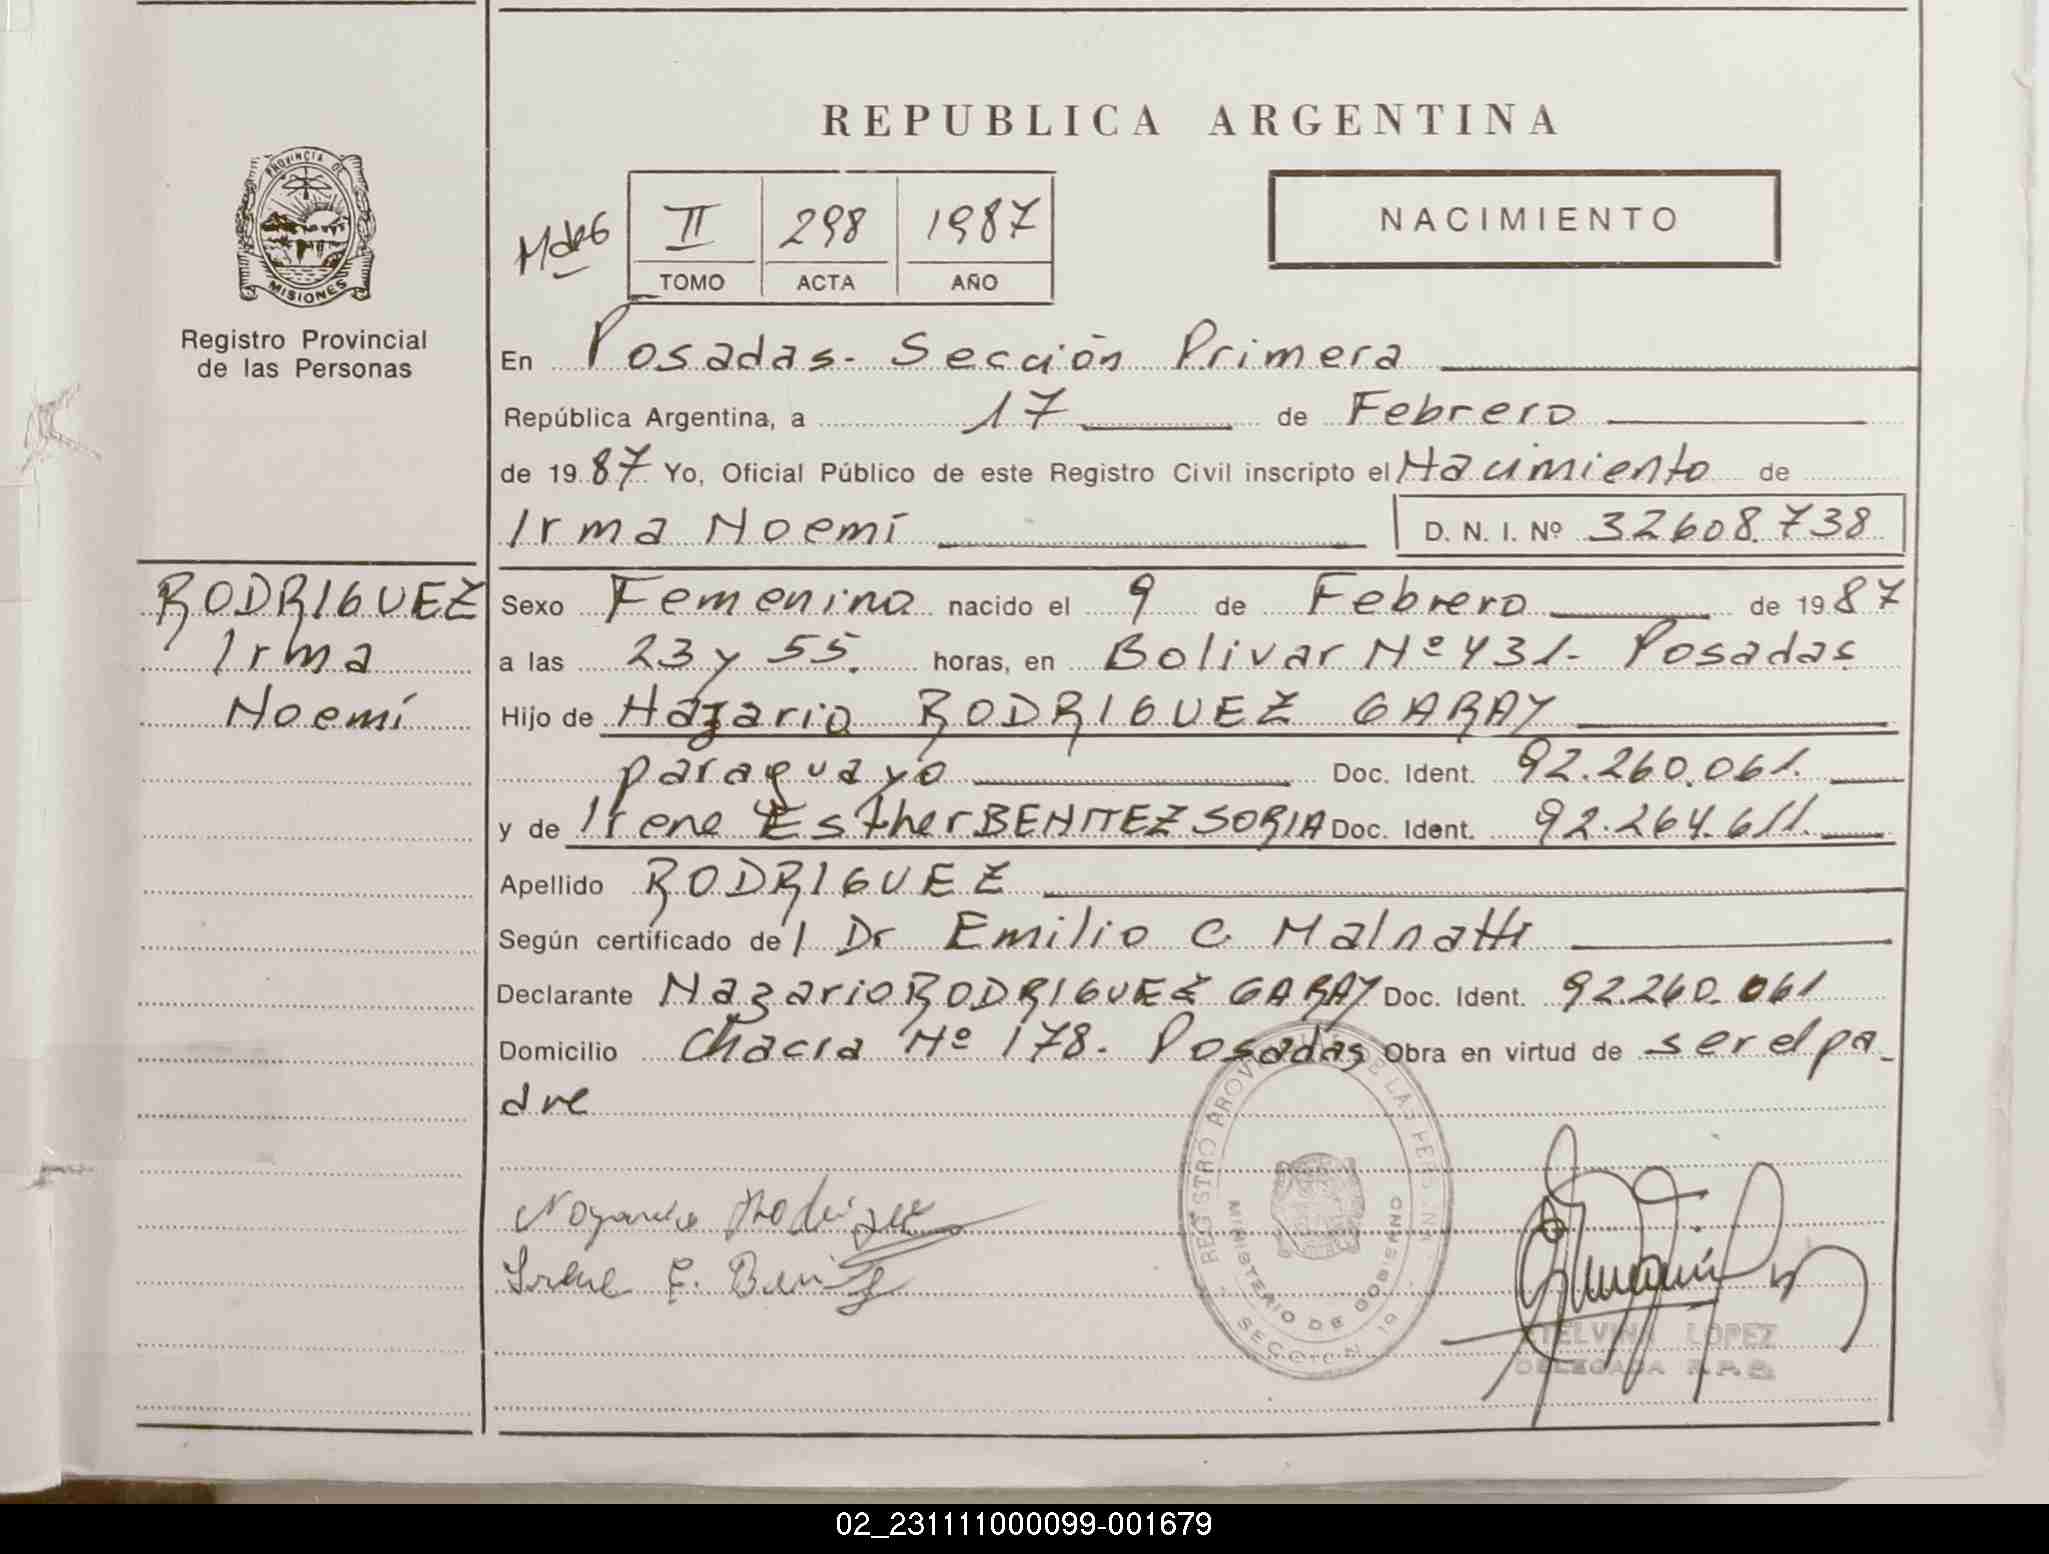 REPUBLICA ARGENTINA
PROVINCIA DE
MISIONES
Registro Provincial
de las Personas
II 298 1987
TOMO ACTA AÑO
NACIMIENTO
En Posadas- Sección Primera
República Argentina, a 17 de Febrero
de 1987 Yo, Oficial Público de este Registro Civil inscripto el Nacimiento de
Irma Noemí D. N. I. Nº 32608.738
RODRIGUEZ
Irma
Noemí
Sexo Femenino nacido el 9 de Febrero de 1987
a las 23 y 55. horas, en Bolivar Nº 431- Posadas
Hijo de Nazario RODRIGUEZ GARAY
paraguayo Doc. Ident. 92.260.061.
y de Irene Esther BENITEZ SORIA Doc. Ident. 92.264.611.
Apellido RODRIGUEZ
Según certificado del Dr Emilio C Malnatti
Declarante Nazario RODRIGUEZ GARAY Doc. Ident. 92.260.061
Domicilio Chacra Nº 178. Posadas Obra en virtud de ser el pa-
dre
Irene E. Benitez
REGISTRO PROVINCIAL DE LAS PERSONAS
MINISTERIO DE GOBIERNO
SECCION 1a
ETELVINA LOPEZ
DELEGADA R.P.P.
02_231111000099-001679